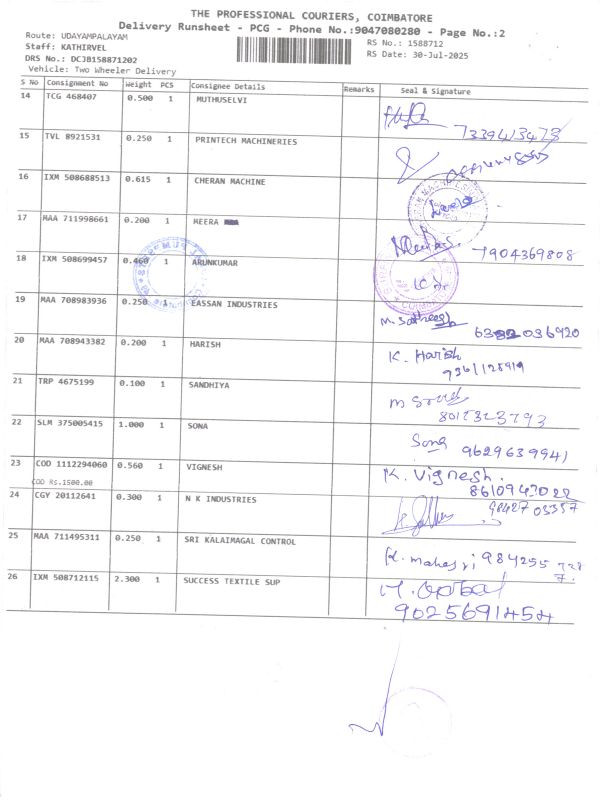 THE PROFESSIONAL COURIERS, COIMBATORE
Delivery Runsheet - PCG - Phone No.:9047080280 - Page No.:2
Route: UDAYAMPALAYAM
Staff: KATHIRVEL
DRS No.: DCJB158871202
Vehicle: Two Wheeler Delivery
RS No.: 1588712
RS Date: 30-Jul-2025
S No Consignment No Weight PCS Consignee Details Remarks Seal & Signature
14 TCG 468407 0.500 1 MUTHUSELVI
7339413473
15 TVL 8921531 0.250 1 PRINTECH MACHINERIES
16 IXM 508688513 0.615 1 CHERAN MACHINE
17 MAA 711998661 0.200 1 MEERA
7904369808
18 IXM 508699457 0.460 1 ARUNKUMAR
19 MAA 708983936 0.250 1 EASSAN INDUSTRIES
M. Satheesh 6382036920
20 MAA 708943382 0.200 1 HARISH
K. Harish
21 TRP 4675199 0.100 1 SANDHIYA
22 SLM 375005415 1.000 1 SONA
Sona 9629639941
23 COD 1112294060 0.560 1 VIGNESH
COD Rs.1500.00
K. Vignesh.
8610943022
24 CGY 20112641 0.300 1 N K INDUSTRIES
25 MAA 711495311 0.250 1 SRI KALAIMAGAL CONTROL
26 IXM 508712115 2.300 1 SUCCESS TEXTILE SUP
9025691454